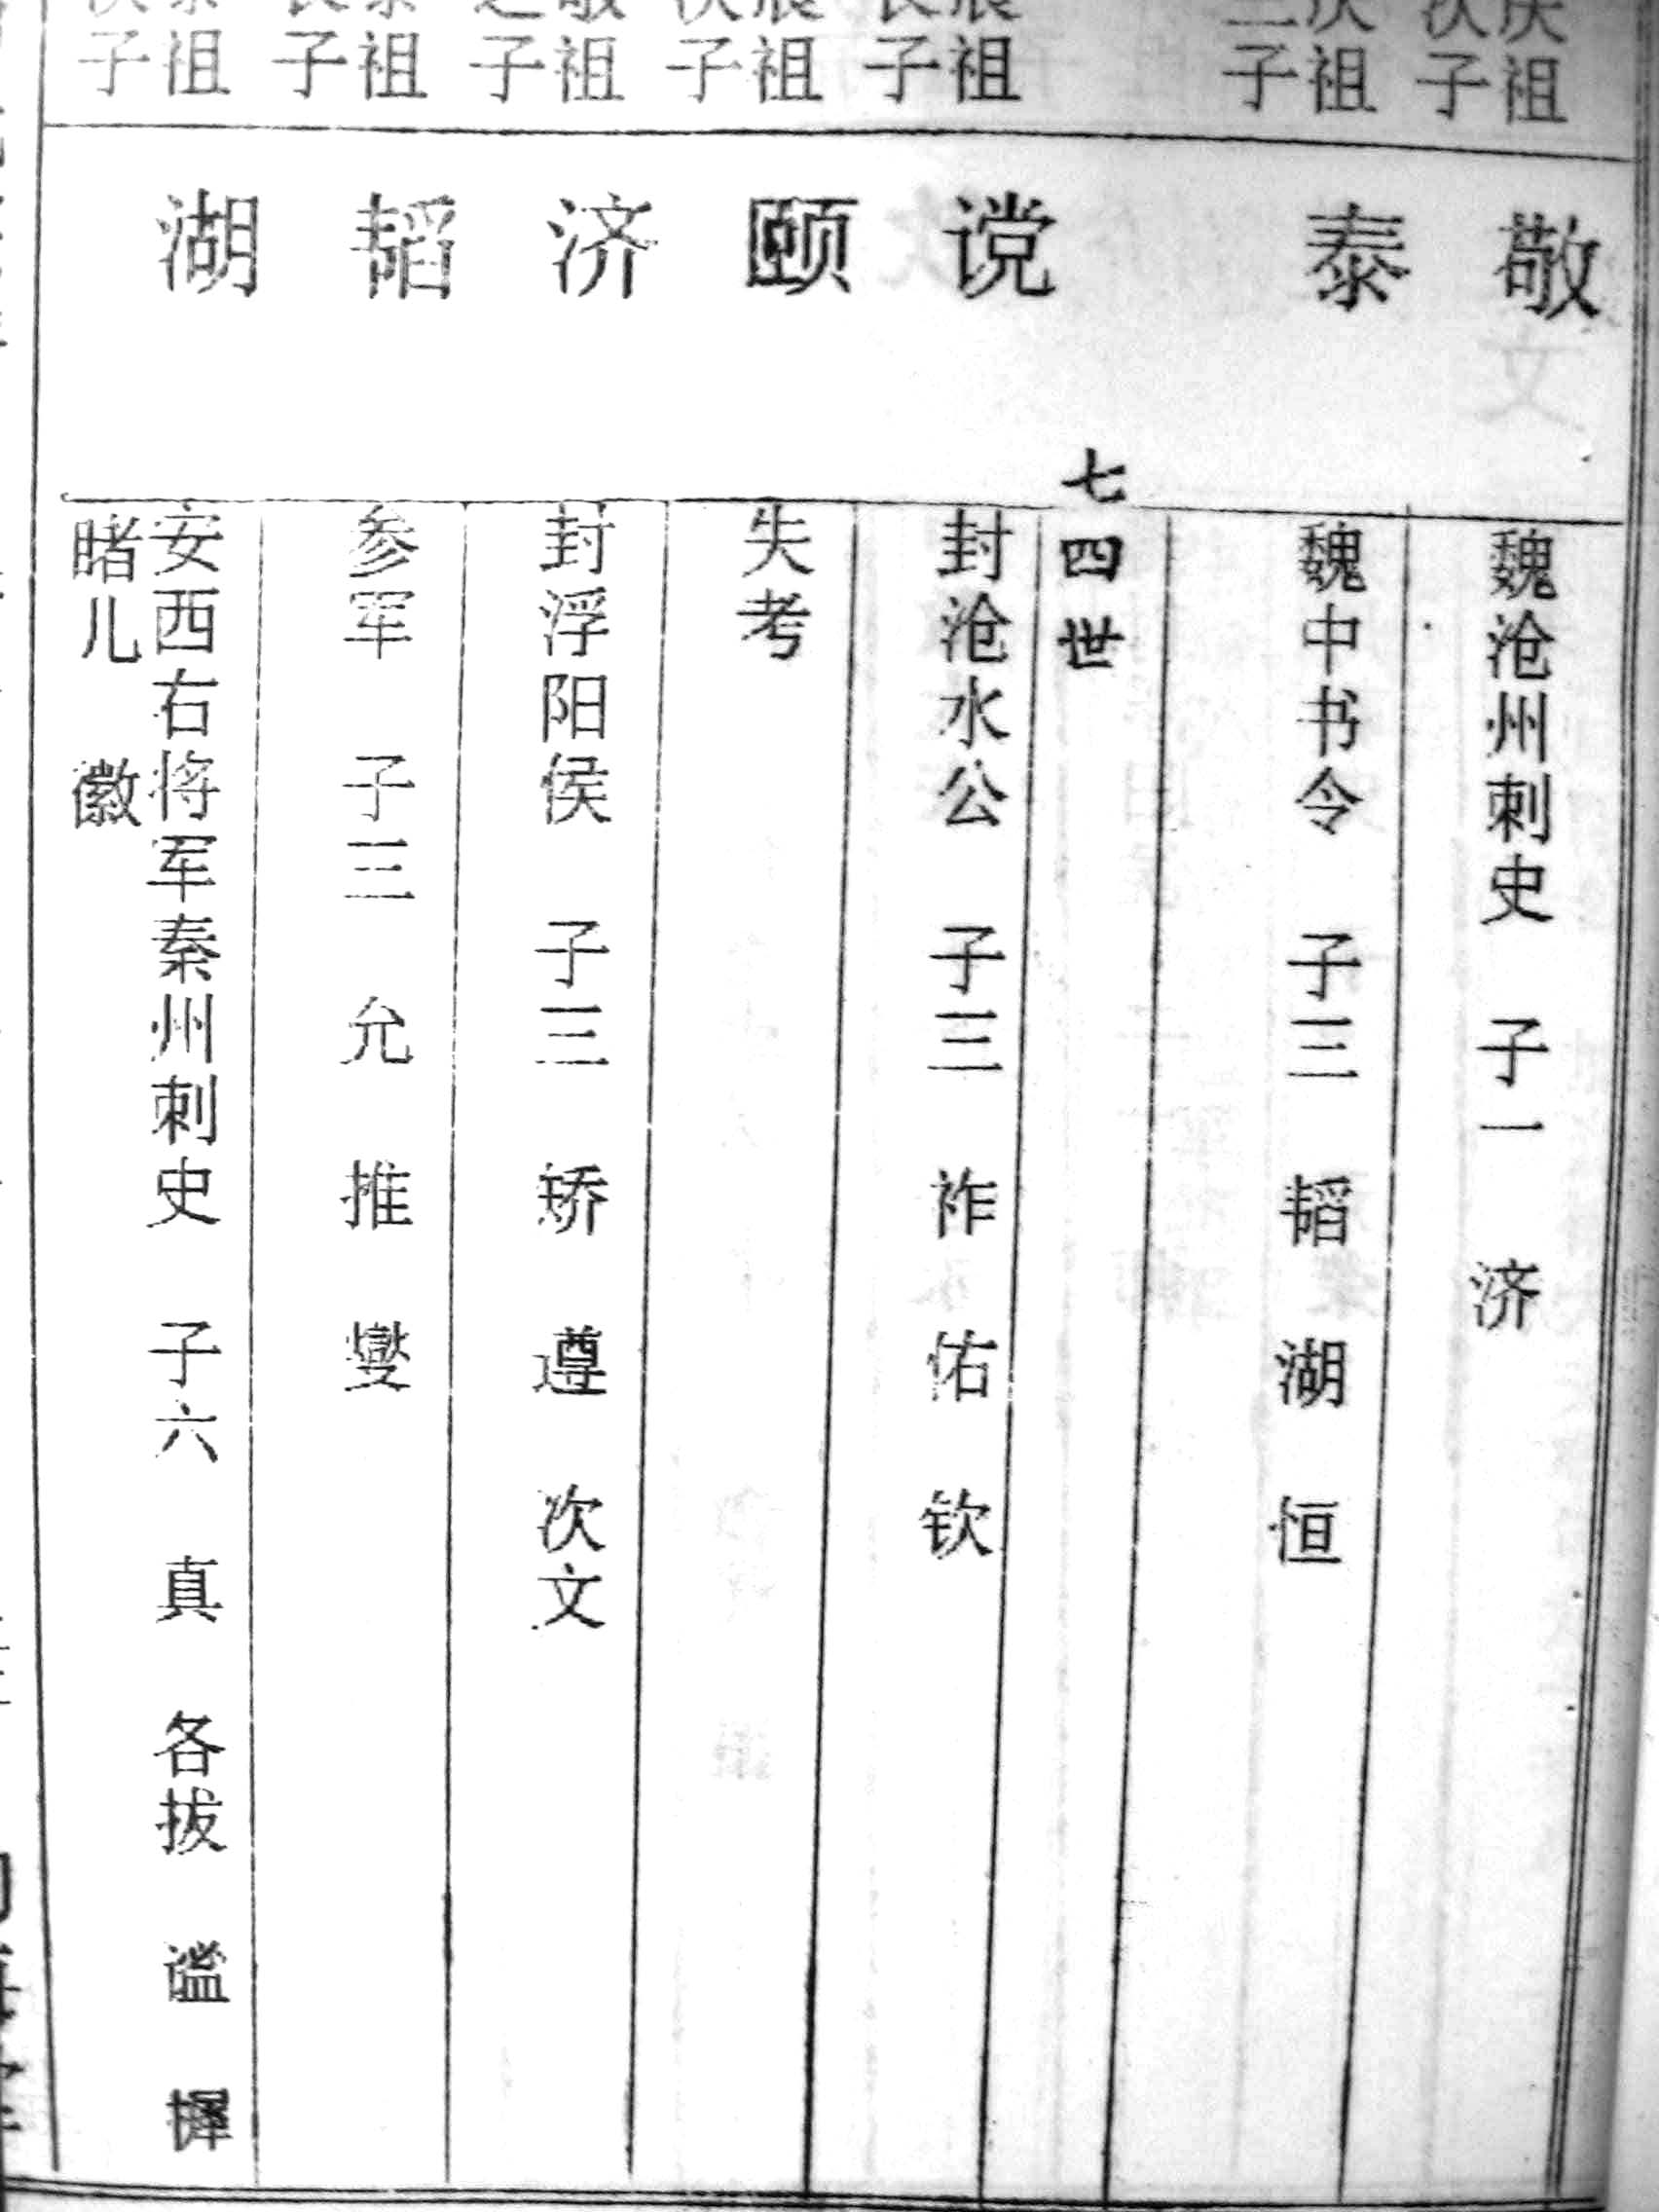 庆祖
次子
敬
魏沧州刺史 子一 济
庆祖
三子
泰
魏中书令 子三 韬 湖 恒
七四世
晨祖
长子
谠
封沧水公 子三 祚 佑 钦
晨祖
次子
颐
失考
敬祖
之子
济
封浮阳侯 子三 矫 遵 次文
泰祖
长子
韬
参军 子三 允 推 燮
泰祖
次子
湖
安西右将军秦州刺史 子六 真 各拔 谧 樨
睹儿 徽